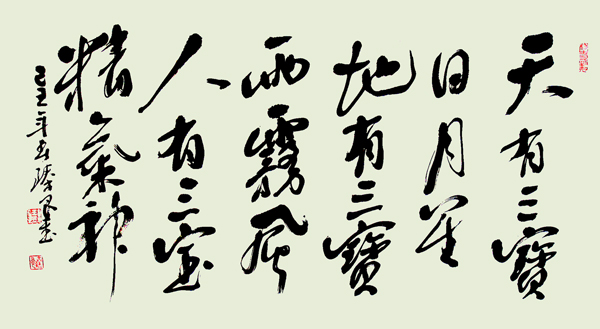 天有三寶
日月星
地有三寶
雨霧風
人有三宝
精氣神
己丑年春